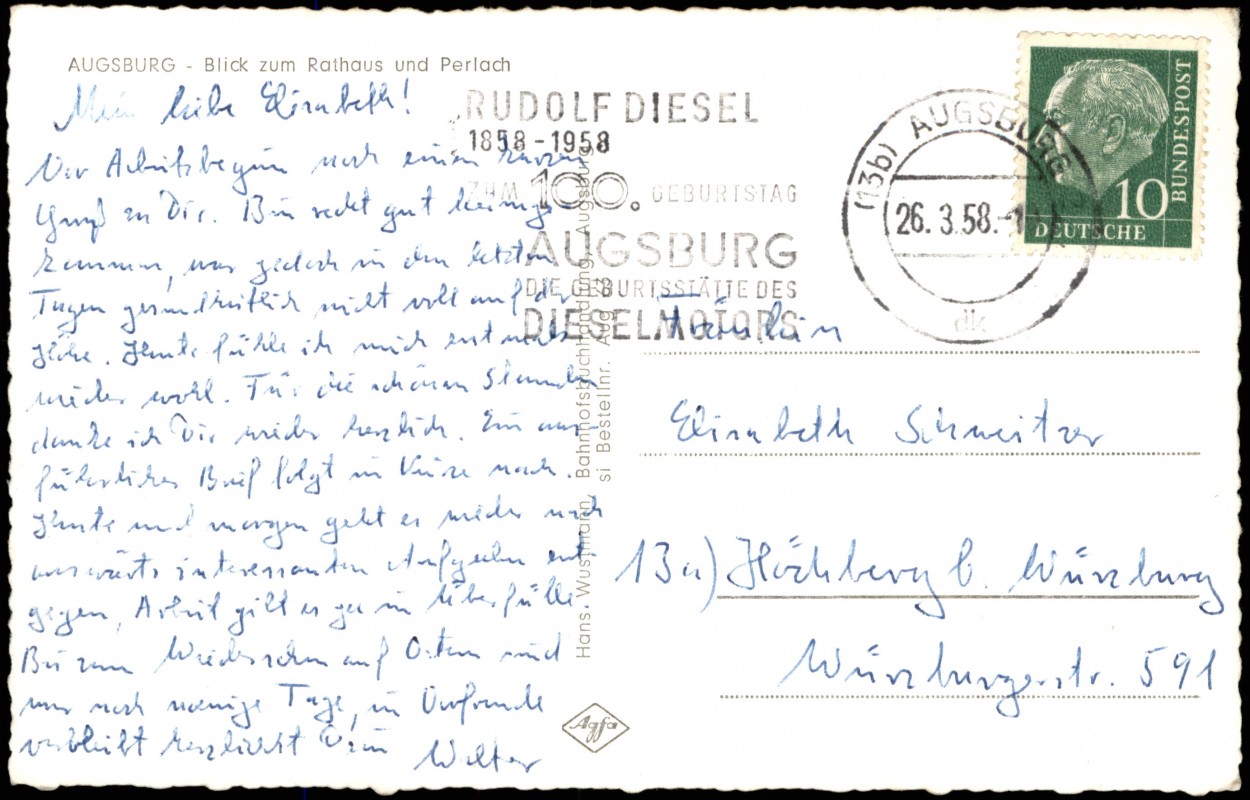 AUGSBURG - Blick zum Rathaus und Perlach
Mein liebe Elisabeth!
Vor Arbeitsbeginn noch einen kurzen
Gruß zu Dir. Bin recht gut
war jedoch in den letzten
Tagen gesundheitlich nicht voll auf der
Höhe. Heute fühle ich mich erstmals
wieder wohl. Für die schönen Stunden
danke ich Dir wieder herzlich. Ein aus-
führlicher Brief folgt in Kürze nach.
Heute und morgen geht es wieder nach
auswärts interessanten Aufgaben ent
gegen, Arbeit gibt es ja in Überfülle.
Bis zum Wiedersehen auf Ostern sind
nur noch wenige Tage, in Vorfreude
verbleibt herzlichst Dein Walter
RUDOLF DIESEL
1858-1958
ZUM 100. GEBURTSTAG
AUGSBURG
DIE GEBURTSSTÄTTE DES
DIESELMOTORS
(13b) AUGSBURG
26. 3.58.
dk
10
DEUTSCHE
BUNDESPOST
Hans Wustmann, Bahnhofsbuchhandlung, Augsburg
si Bestellnr. Aug
Agfa
Fräulein
Elisabeth Schweitzer
13a) Höchberg b. Würzburg
Würzburgerstr. 591